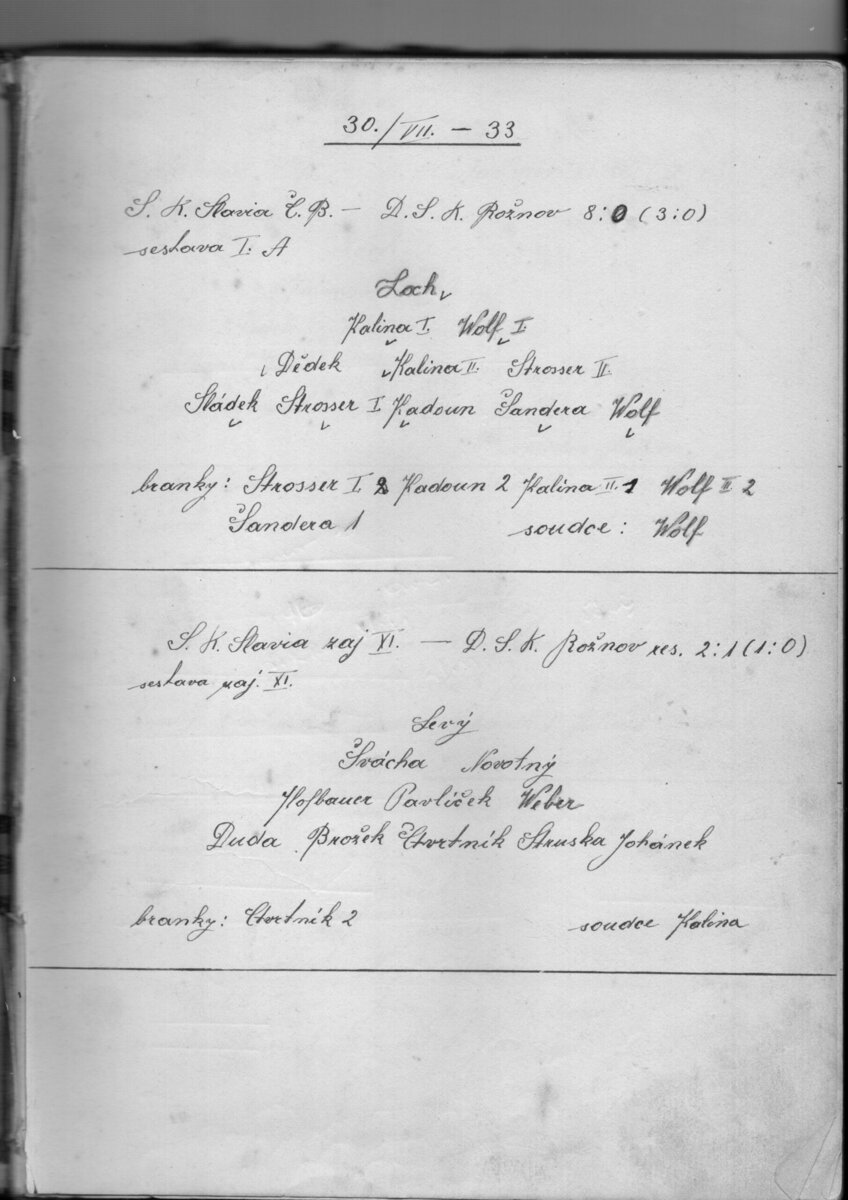 30./VII. — 33
S. K. Slavia Č. B. — D. S. K. Rožnov 8:0 (3:0)
sestava I. A
Loch
Kalina I. Wolf I.
Dědek Kalina II. Strosser II.
Sládek Strosser I Kadoun Šandera Wolf
branky: Strosser I. 2 Kadoun 2 Kalina II. 1 Wolf II 2
Šandera 1 soudce: Wolf
S. K. Slavia zaj XI. — D. S. K. Rožnov res. 2:1 (1:0)
sestava zaj. XI.
Levý
Švácha Novotný
Hofbauer Pavlíček Weber
Duda Brožek Čtvrtník Struska Johánek
branky: Čtvrtník 2 soudce Kalina